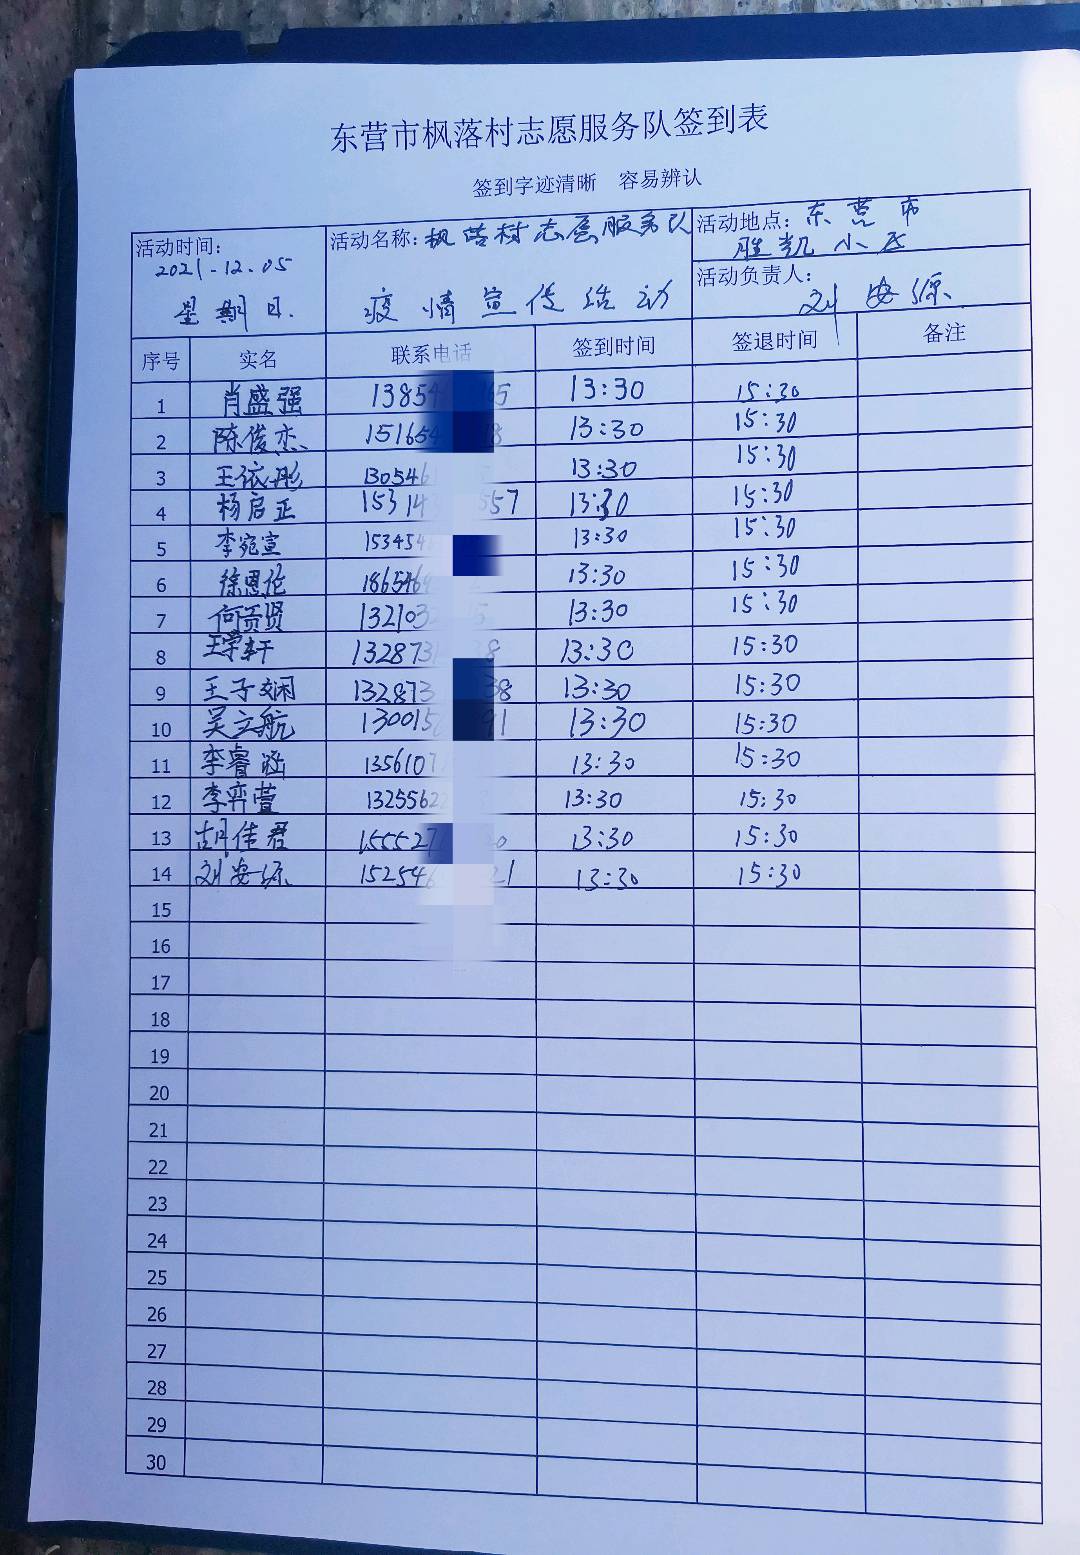 东营市枫落村志愿服务队签到表
签到字迹清晰 容易辨认
活动时间:
2021-12.05
星期日.
活动名称: 枫落村志愿服务队
疫情宣传活动
活动地点: 东营市
胜凯小区
活动负责人:
刘安源
序号 实名 联系电话 签到时间 签退时间 备注
1 肖盛强 13854 65 13:30 15:30
2 陈俊杰 151654 8 13:30 15:30
3 王依彤 130546 13:30 15:30
4 杨启正 15314 557 13:30 15:30
5 李宛宣 153454 13:30 15:30
6 徐恩伦 186546 13:30 15:30
7 何贡贤 132103 5 13:30 15:30
8 王学轩 1328731 38 13:30 15:30
9 王子娴 132873 38 13:30 15:30
10 吴立航 130015 91 13:30 15:30
11 李睿涵 1356107 13:30 15:30
12 李弈萱 1325562 13:30 15:30
13 胡佳君 155527 20 13:30 15:30
14 刘安源 152546 21 13:30 15:30
15
16
17
18
19
20
21
22
23
24
25
26
27
28
29
30